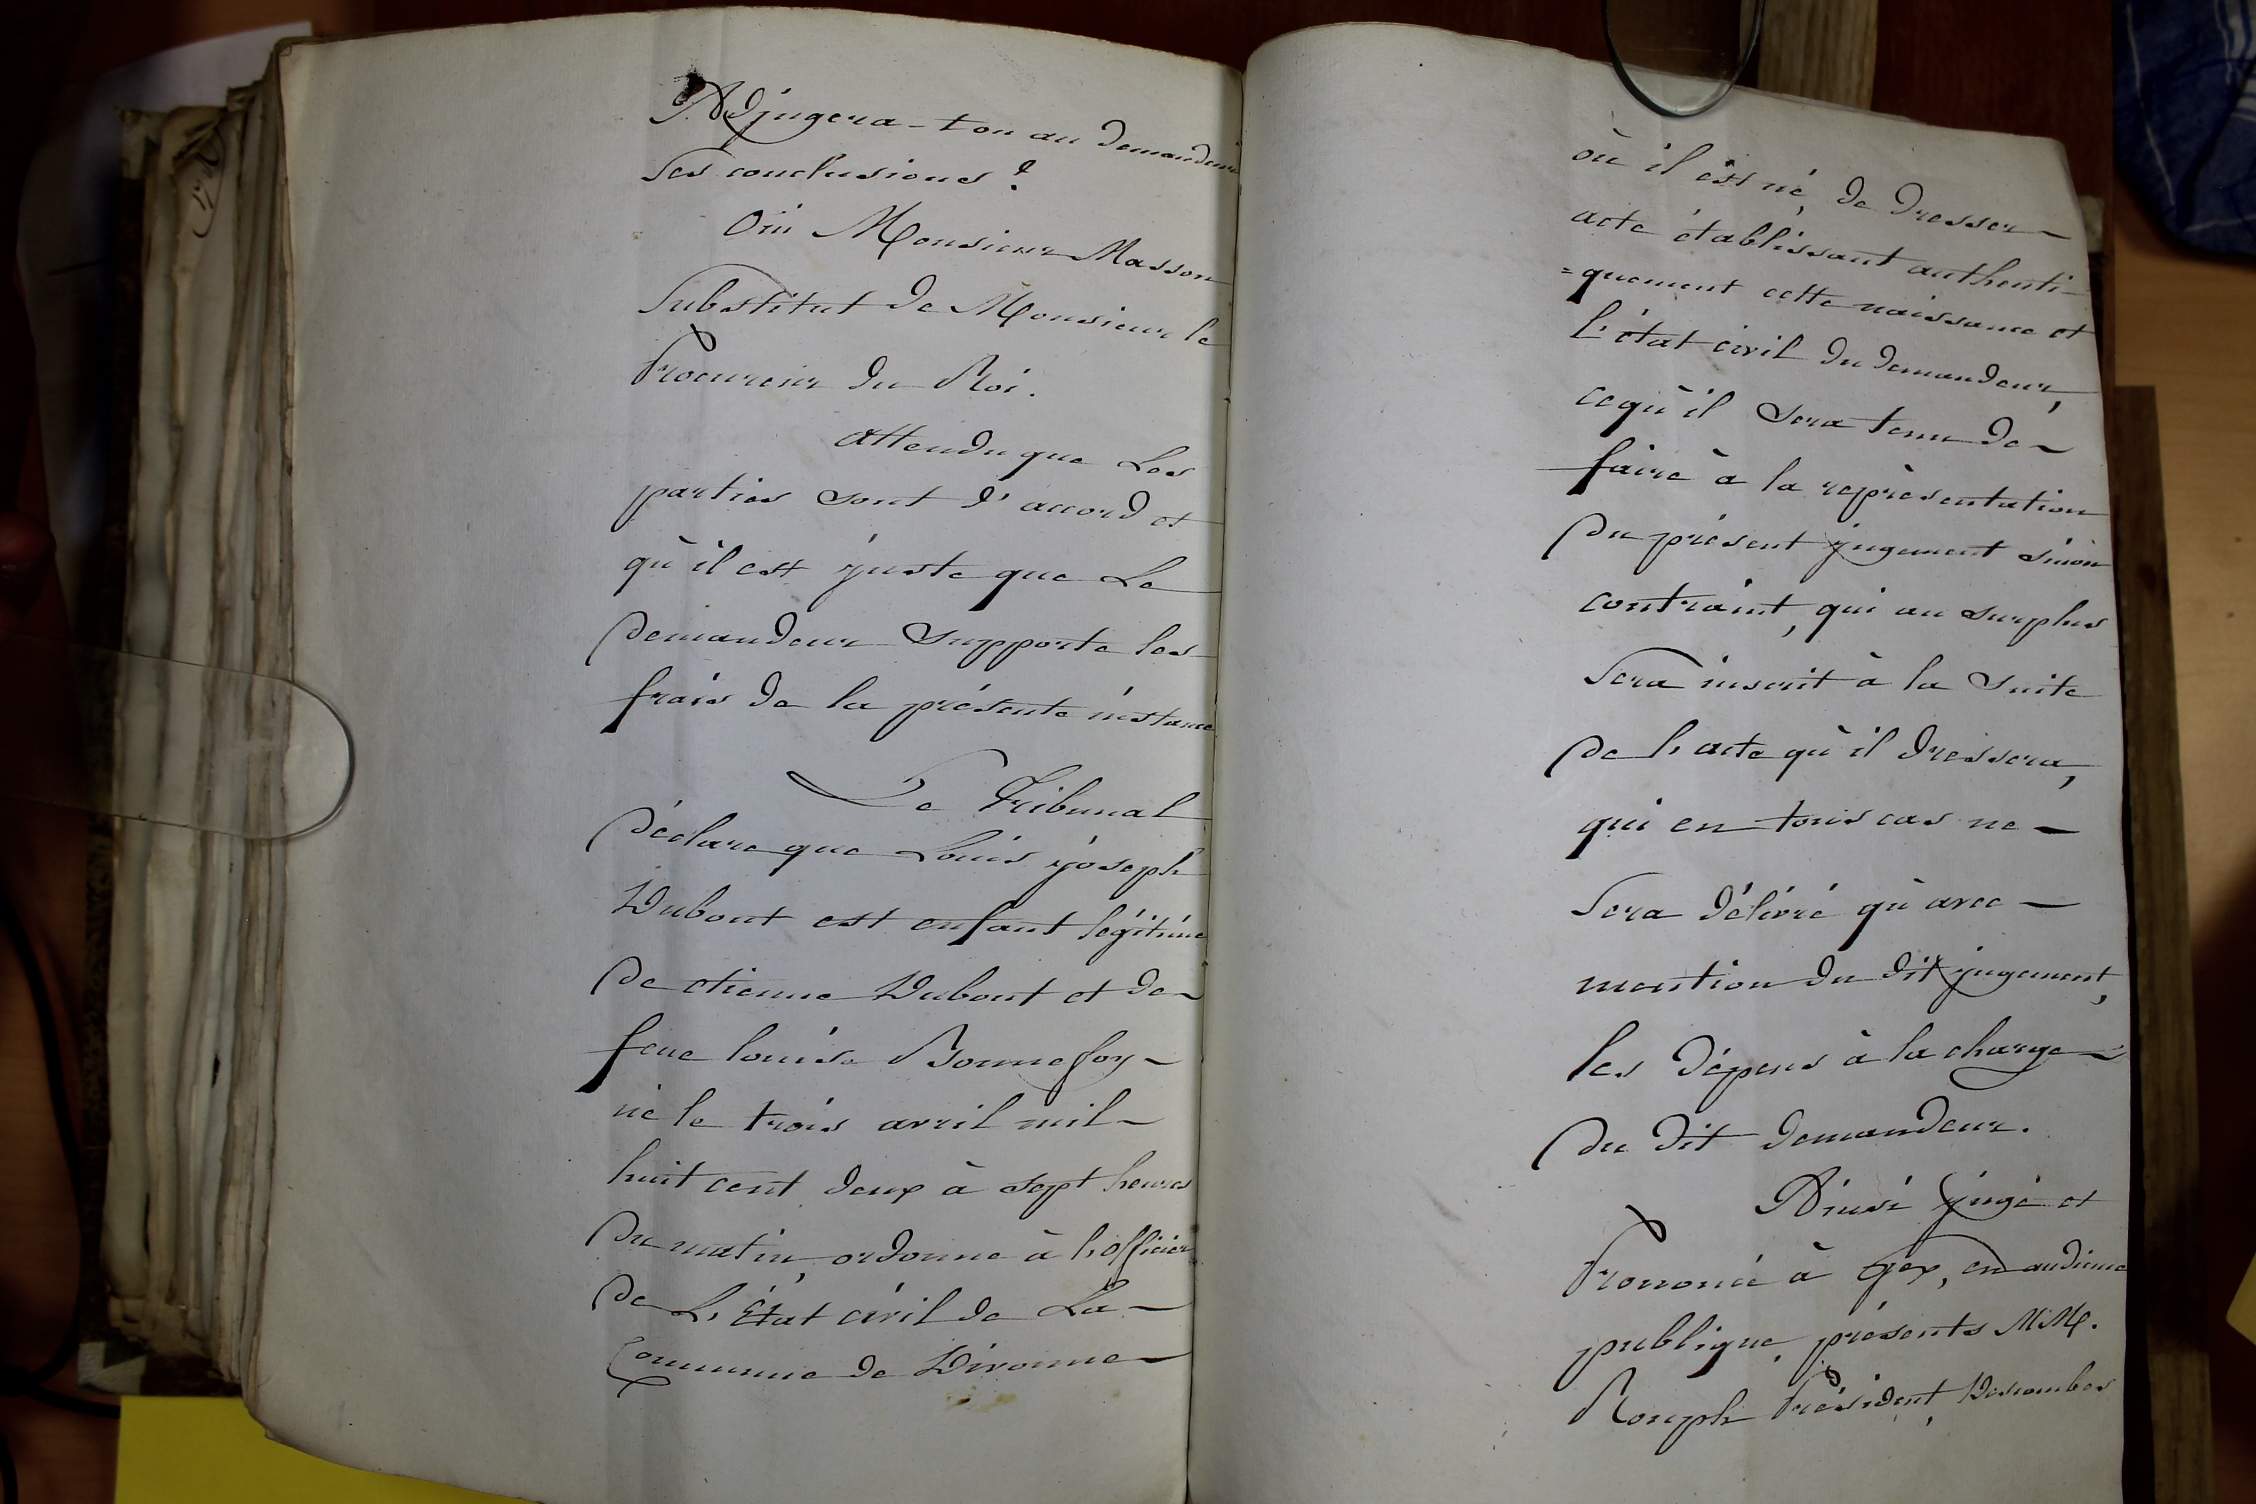 Adjugera-t on au demandeur
Ses conclusions ?
Oüi Monsieur Masson
Substitut de Monsieur le
Procureur du Roi.
attendu que Les
parties sont d'accord et
qu'il est juste que Le
demandeur Supporte les
frais de la présente instance
Le Tribunal
déclare que Louis joseph
Dubout est enfant légitime
de etienne Dubout et de
feue louise Bonnefoy
né le trois avril mil
huit cent deux à sept heures
du matin, ordonne à l'officier
de L'État civil de La
Commune de Divonne
où il est né, de dresser
acte établissant authenti
=quement cette naissance et
l'état civil du demandeur,
cequ'il sera tenu de
faire à la représentation
du présent jugement sinon
contraint, qui au surplus
Sera inscrit à la Suite
de l'acte qu'il dressera,
qui en tous cas ne
Sera délivré qu'avec
mention du dit jugement,
les dépens à la charge
du dit demandeur.
Ainsi jugé et
Prononcé à Gex, en audience
publique, présents MM.
Rouph Président, Descombes